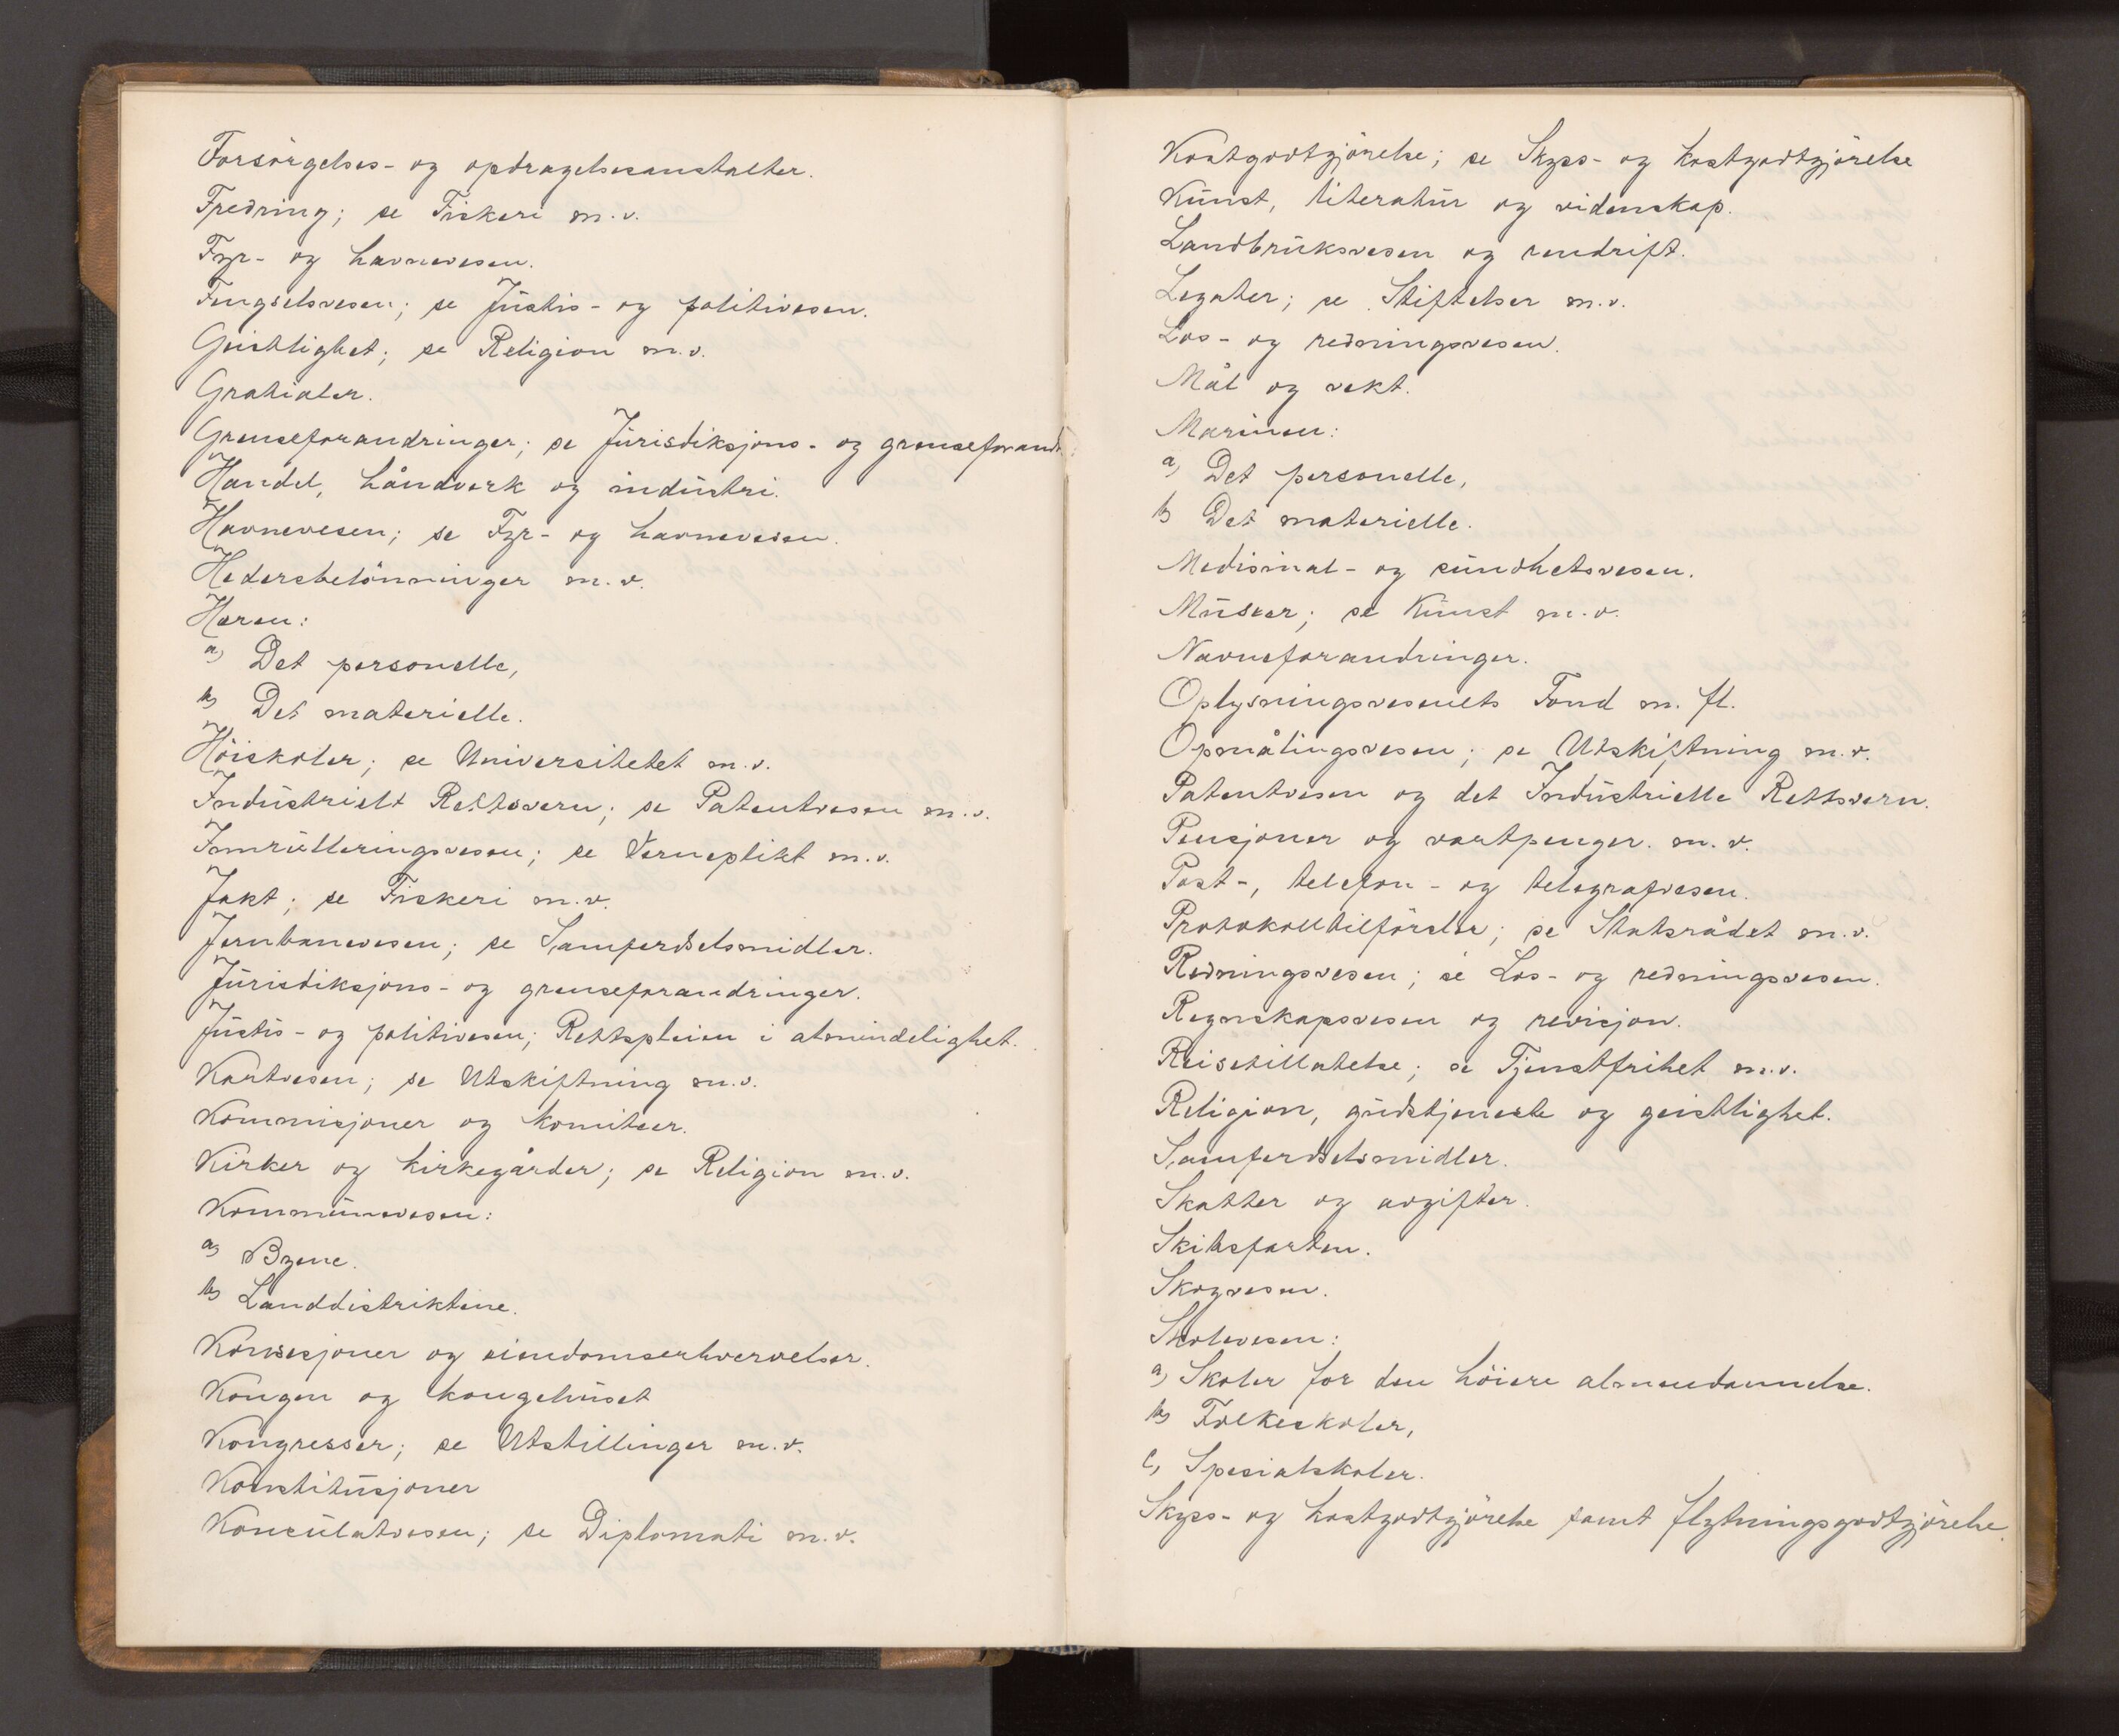 Forsörgelses- og opdragelsesanstalter.
Fredning; se Fiskeri m.v.
Fyr- og havnevesen.
Fengselsvesen; se Justis- og politivesen.
Geistlighet; se Religion m.v.
Gratialer.
Grenseforandringer; se Jurisdiksjons- og grenseforandr
Handel, håndverk og industri.
Havnevesen; se Fyr- og havnevesen.
Hedersbelönninger m.v.
Hæren:
a) Det personelle,
b) Det materielle.
Höiskoler; se Universitetet m.v.
Industrielt Rettsvern; se Patentvesen m.v.
Innrulleringsvesen; se Verneplikt m.v.
Jakt; se Fiskeri m.v.
Jernbanevesen; se Samferdselsmidler.
Jurisdiksjons- og grenseforandringer.
Justis- og politivesen; Rettspleien i almindelighet.
Kartvesen; se Utskiftning m.v.
Kommisjoner og komiteer.
Kirker og kirkegårder; se Religion m.v.
Kommunevesen:
a) Byene.
b) Landdistriktene.
Konsesjoner og eiendomserhvervelser.
Kongen og kongehuset
Kongresser; se Utstillinger m.v.
Konstitusjoner
Konsulatvesen; se Diplomati m.v.
Kostgodtgjörelse; se Skyss- og kostgodtgjörelse
Kunst, literatur og videnskap.
Landbruksvesen og rendrift.
Legater; se Stiftelser m.v.
Los- og redningsvesen.
Mål og vekt.
Marinen:
a) Det personelle,
b) Det materielle.
Medisinal- og sundhetsvesen.
Museer; se Kunst m.v.
Navneforandringer.
Oplysningsvesenets Fond m.fl.
Opmålingsvesen; se Utskiftning m.v.
Patentvesen og det Industrielle Rettsvern.
Pensjoner og vartpenger. m.v.
Post-, telefon- og telegrafvesen.
Protokolltilförsler; se Statsrådet m.v.
Redningsvesen; se Los- og redningsvesen.
Regnskapsvesen og revisjon.
Reisetillatelse; se Tjenstfrihet m.v.
Religion, gudstjeneste og geistlighet.
Samferdselsmidler.
Skatter og avgifter.
Skibsfarten.
Skogvesen.
Skolevesen:
a) Skoler for den höiere almendannelse.
b) Folkeskoler,
c, Spesialskoler.
Skyss- og kostgodtgjörelse samt flytningsgodtgjörelse.